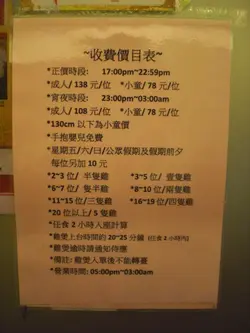 ~收費價目表~
*正價時段: 17:00pm~22:59pm
*成人/ 138 元/位 *小童/ 78 元/位
*宵夜時段: 23:00pm~03:00am
*成人/ 108 元/位 *小童/ 78 元/位
*130cm 以下為小童價
*手抱嬰兒免費
*星期五/六/日/公眾假期及假期前夕
每位另加 10 元
*2~3 位/ 半隻雞 *3~5 位/ 壹隻雞
*6~7 位/ 隻半雞 *8~10 位/ 兩隻雞
*11~15 位/三隻雞 *16~19 位/四隻雞
*20 位以上/ 5 隻雞
*任食 2 小時入座計算
*雞煲上台時間約 20~25 分鐘 (任食 2 小時內)
*雞煲逾時請通知待應
*備註: 雞煲入單後不能轉薯
*營業時間: 05:00pm~03:00am